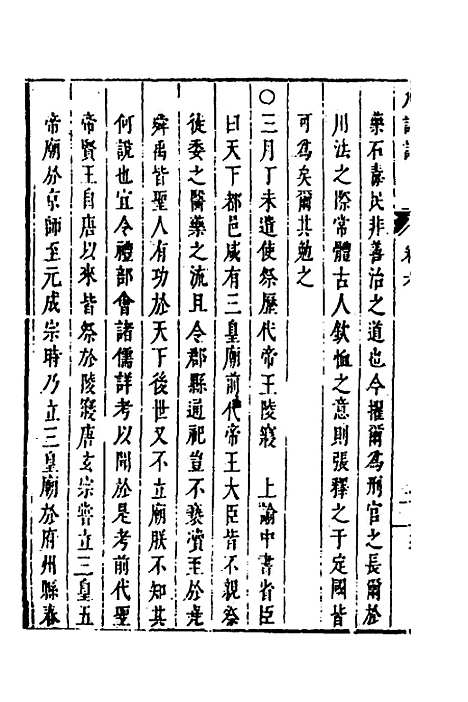 藥石壽民非善治之道也今擢爾爲刑官之長爾於
用法之際常體古人欽恤之意則張釋之于定國皆
可爲矣爾其勉之
○三月丁未遣使祭歷代帝王陵寢 上諭中書省臣
曰天下都邑咸有三皇廟前代帝王大臣皆不親祭
徒委之醫藥之流且令郡縣通祀豈不褻瀆至於堯
舜禹皆聖人有功於天下後世又不立廟朕不知其
何說也宜令禮部會諸儒詳考以聞於是考前代聖
帝賢王自唐以來皆祭於陵寢唐玄宗嘗立三皇五
帝廟於京師至元成宗時乃立三皇廟於府州縣春